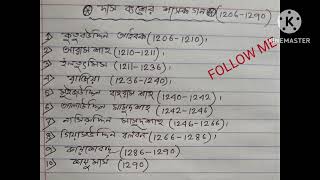 দাস বংশের শাসক গন (1206-1290)
KINEMASTER
১) কুতুবউদ্দিন আইবক (1206-1210),
২) আরাম শাহ (1210-1211),
৩) ইলতুৎমিস (1211-1236),
৪) রাজিয়া (1236-1240),
৫) মুইজউদ্দিন বাহরাম শাহ (1240-1242),
৬) আলাউদ্দিন মাসুদ শাহ (1242-1246)
৭) নাসিরুদ্দিন মামুদ শাহ (1246-1266),
৮) গিয়াসউদ্দিন বলবন (1266-1286),
৯) কায়কোবাদ (1286-1290)
১০) কায়ুমার্স (1290)
FOLLOW ME